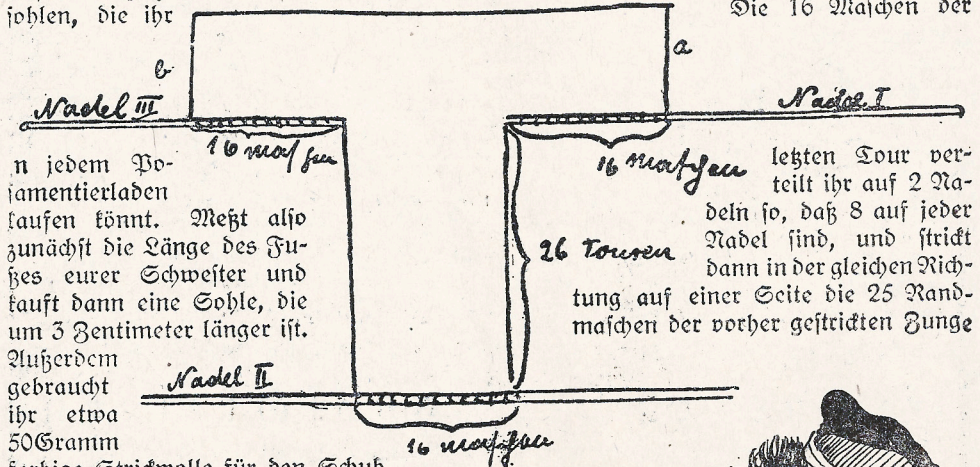 sohlen, die ihr
Die 16 Maschen der
a
b
Nadel III
Nadel I
16 Maschen
16 Maschen
n jedem Po-
samentierladen
kaufen könnt. Meßt also
zunächst die Länge des Fu-
ßes eurer Schwester und
kauft dann eine Sohle, die
um 3 Zentimeter länger ist.
Außerdem
gebraucht
ihr etwa
50Gramm
farbige Strickwolle für den Schuh
26 Touren
letzten Tour ver-
teilt ihr auf 2 Na-
deln so, daß 8 auf jeder
Nadel sind, und strickt
dann in der gleichen Rich-
tung auf einer Seite die 25 Rand-
maschen der vorher gestrickten Zunge
Nadel II
16 Maschen